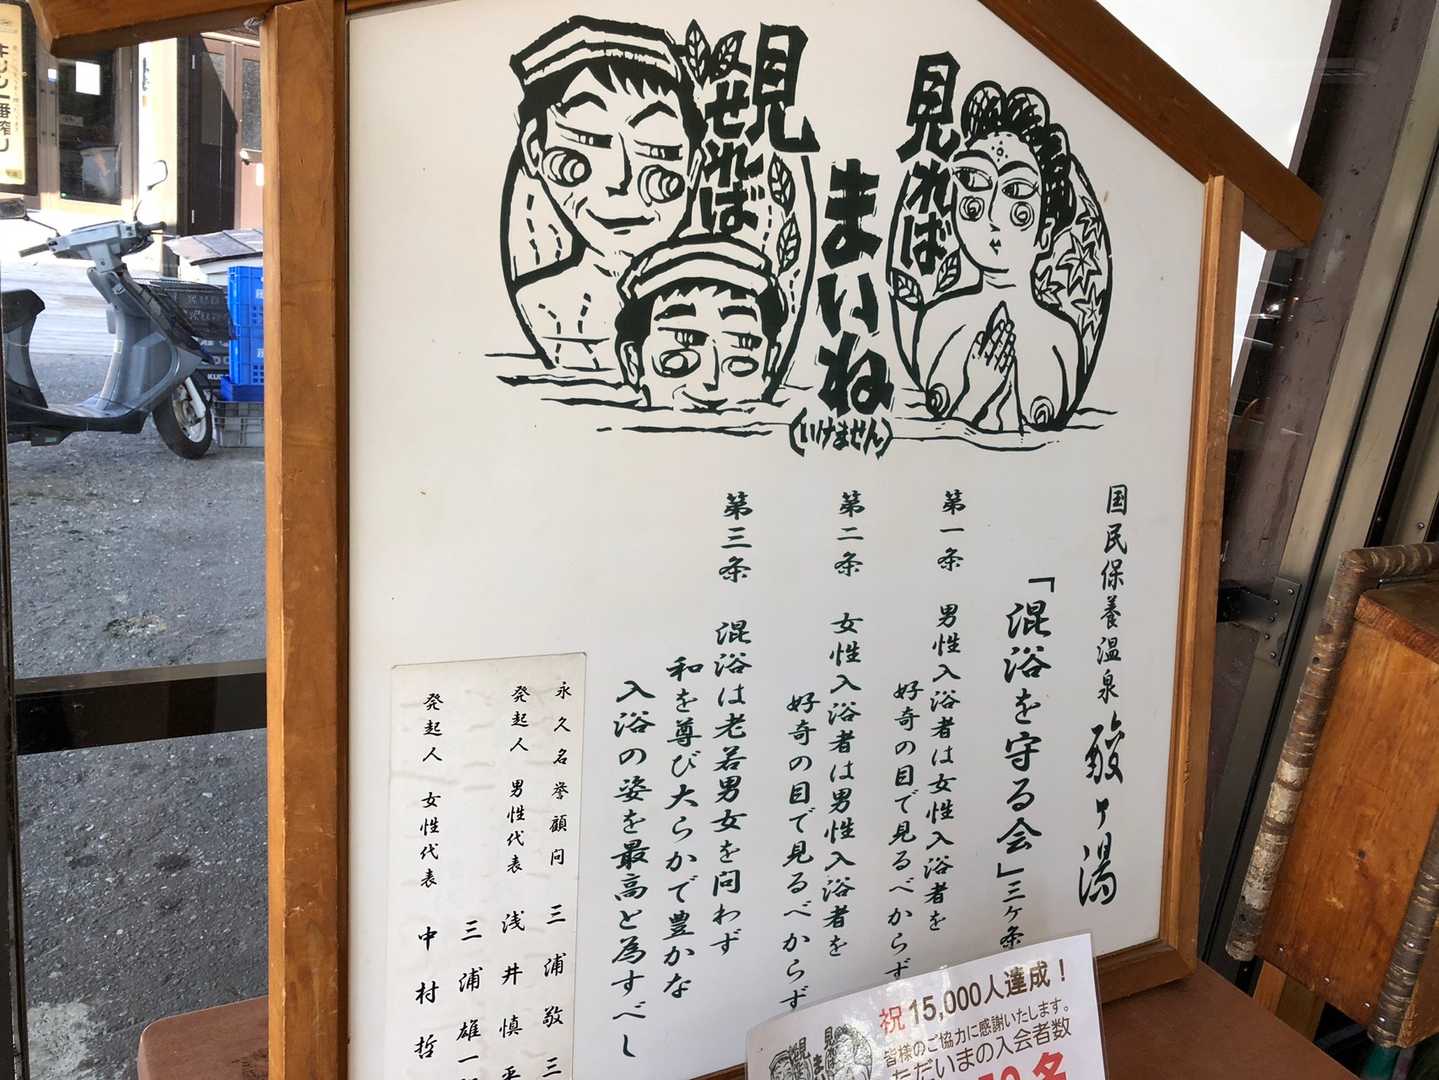 見れば
まいね
(いけません)
見
せれば
国民保養温泉 酸ヶ湯
「混浴を守る会」三ヶ条
第一条 男性入浴者は女性入浴者を
好奇の目で見るべからず
第二条 女性入浴者は男性入浴者を
好奇の目で見るべからず
第三条 混浴は老若男女を問わず
和を尊び大らかで豊かな
入浴の姿を最高と為すべし
永久名誉顧問 三浦敬三
発起人 男性代表 浅井慎平
三浦雄一
発起人 女性代表 中村哲
祝15,000人達成!
皆様のご協力に感謝いたします。
ただいまの入会者数
名
見れば
まいね
キリン一番搾り